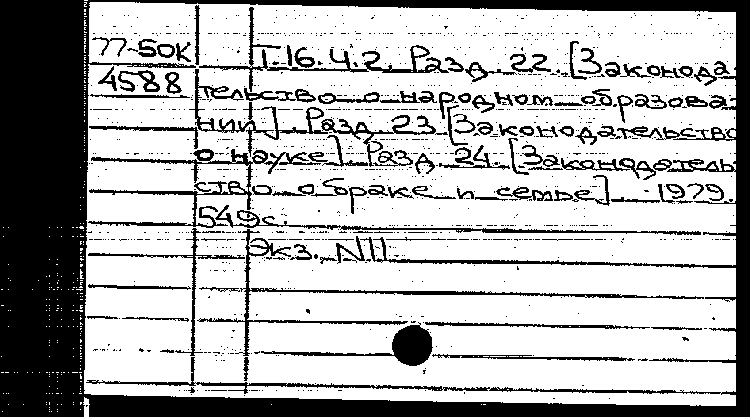 77-50К Т.16. Ч.2. Разд. 22. [Законода-
4588 тельство о народном образова-
нии]. Разд. 23 [Законодательство
о науке]. Разд. 24. [Законодатель-
ство о браке и семье]. 1979.
549с.
Экз. N11